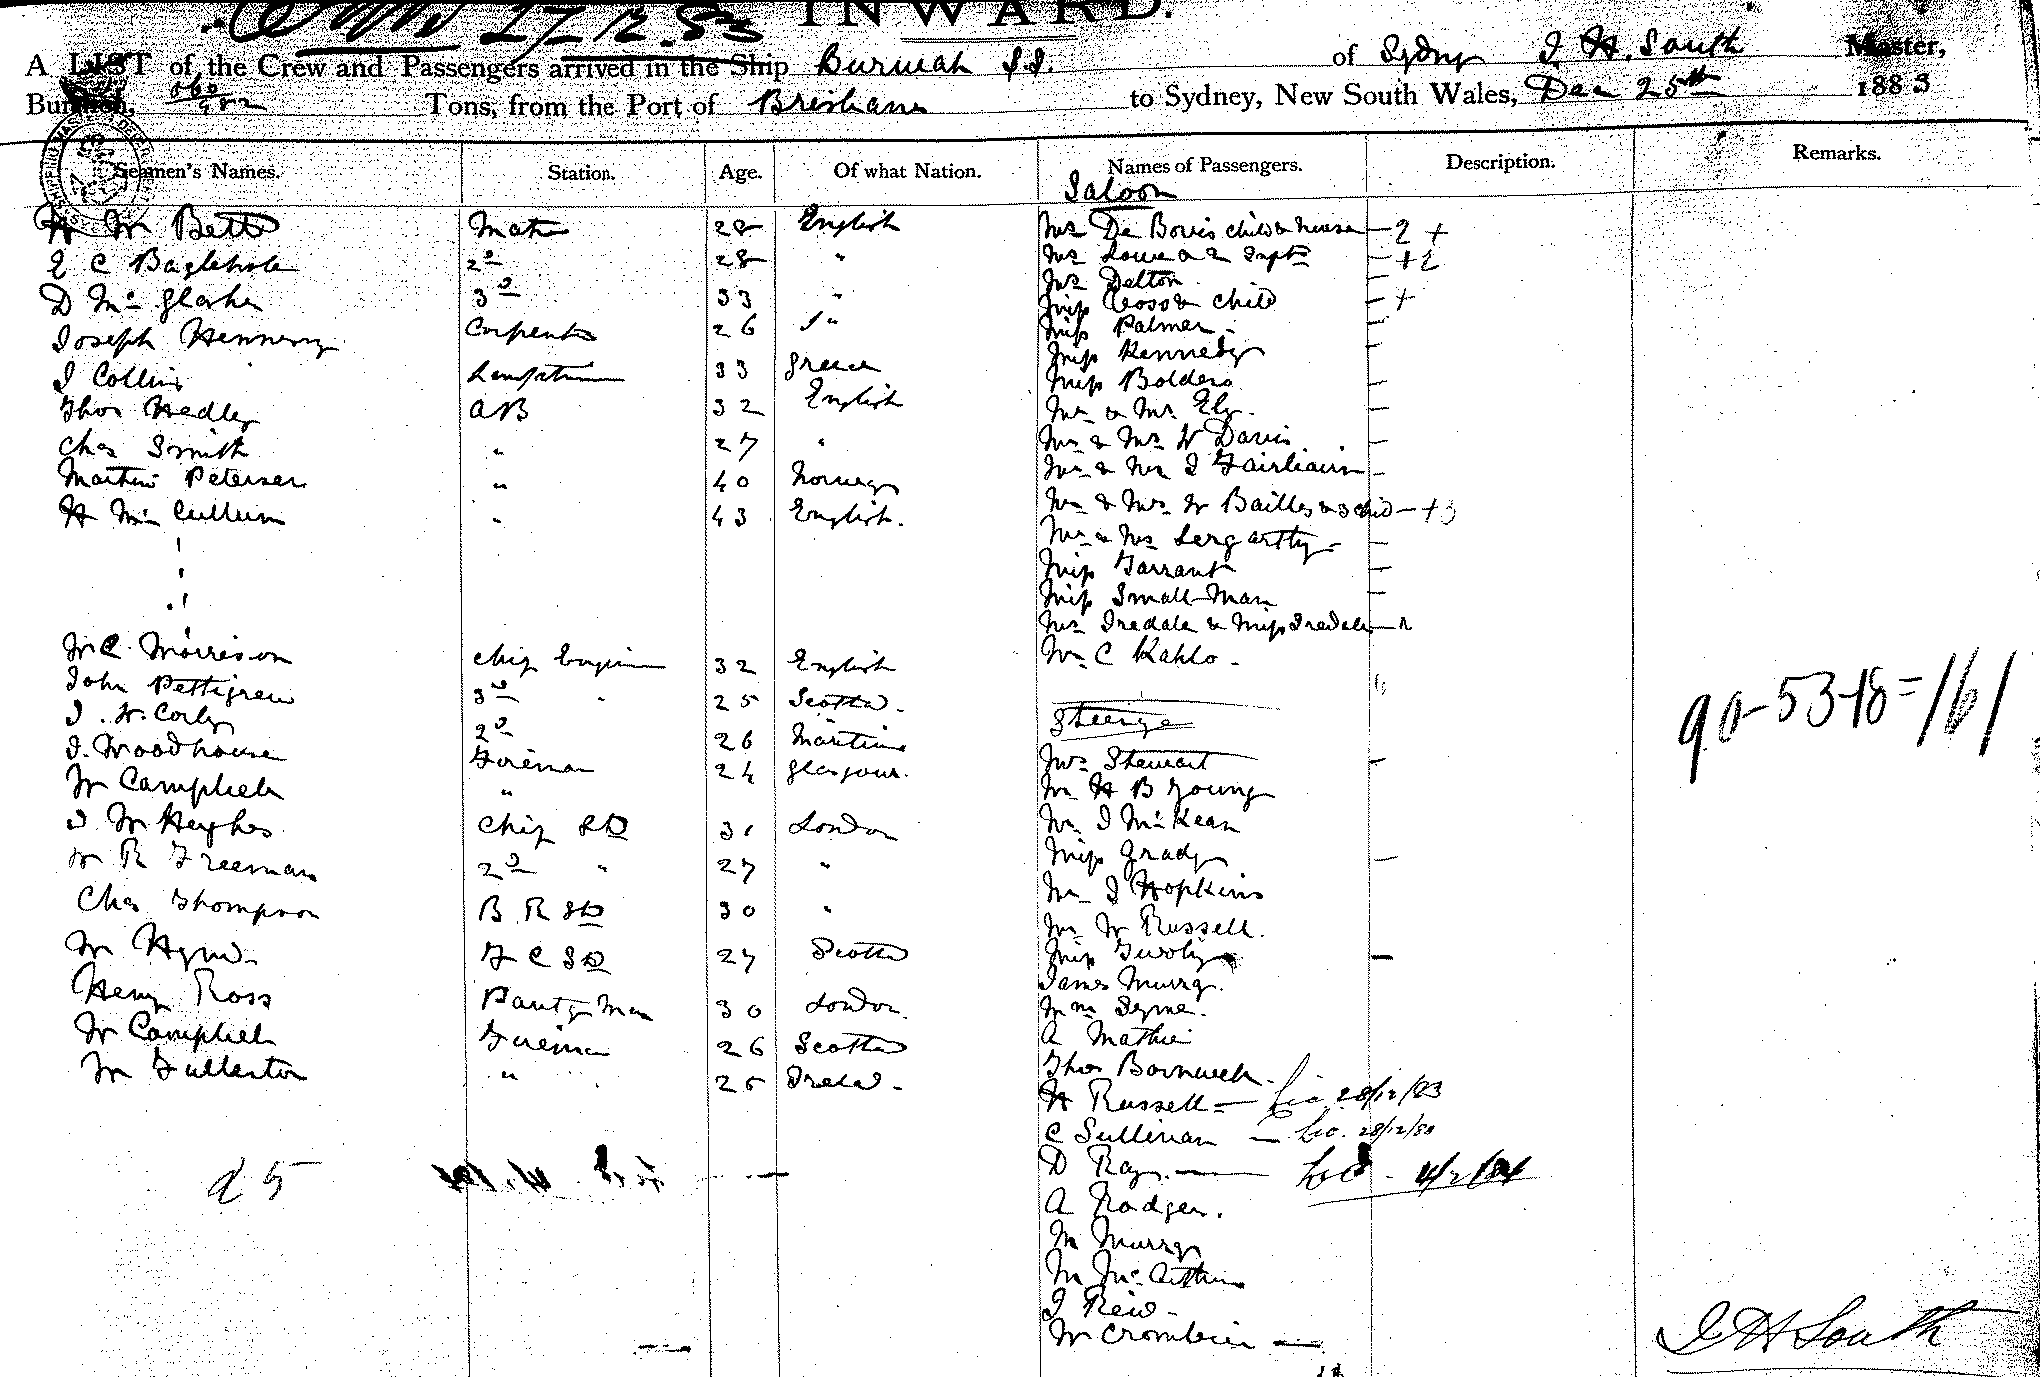 27.12.83 INWARD.
A LIST of the Crew and Passengers arrived in the Ship Burwah S.S. of Sydny J. H. South Master,
Burthen, Tons, from the Port of Brisbane to Sydney, New South Wales, Dec 25th 1883
Seamen's Names. Station. Age. Of what Nation. Names of Passengers. Description. Remarks.
Saloon
H W Betts Mate 28 English Mrs De Boris child & nurse — 2 +
E C Baglehole 2d 28 " Mrs Lowe & 2 Inpts — + 2
D Mc 3d 33 " Mrs Dalton —
Joseph Hennery Carpenter 26 " Miss & child — +
Miss Palmer —
J Collins Lamptrimmer 33 Greece Miss Kennedy —
Miss Bolders —
Thos Hedley AB 32 English Mr & Mrs Ely. —
Chas Smith " 27 " Mr & Mrs W Davis —
Martin Petersen " 40 Norway Mr & Mrs J Fairbairn —
H McCullum " 43 English. Mr & Mrs W Bailles & 3 child — + 3
Mr & Mrs —
Miss Tarrant —
Miss Small Man —
Mrs Iredale & Miss Iredale —
W C Morrison Chief Engin 32 English Mr C Kahlo -
John Pettigrew 3d " 25 Scotld.
J. W. Corley 2d 26 Steerage
J. Woodhouse Fireman 24 Glasgow. Mrs Stewart —
W Campbell " Mr H B Young
J W Hughes Chief Std 31 London Mr J McKean
W R Freeman 2d " 27 " Miss Grady —
Mr J Hopkins
Chas Thompson B. R Std 30 " Mr W Russell.
W Hynd F C Std 27 Scotld Miss —
James Murray.
Henry Ross Pantry Man 30 London. Wm
W Campbell Fireman 26 Scotld A Mathie
W Fullerton " 25 Ireld. Thos
H Russell — Lic 28/12/83
C Sullivan — Lic. 28/12/83
D Ray. —
A Rodger.
M Murray
M McArthur
J Reid -
W Crombie —
90-53-18=161
J H South